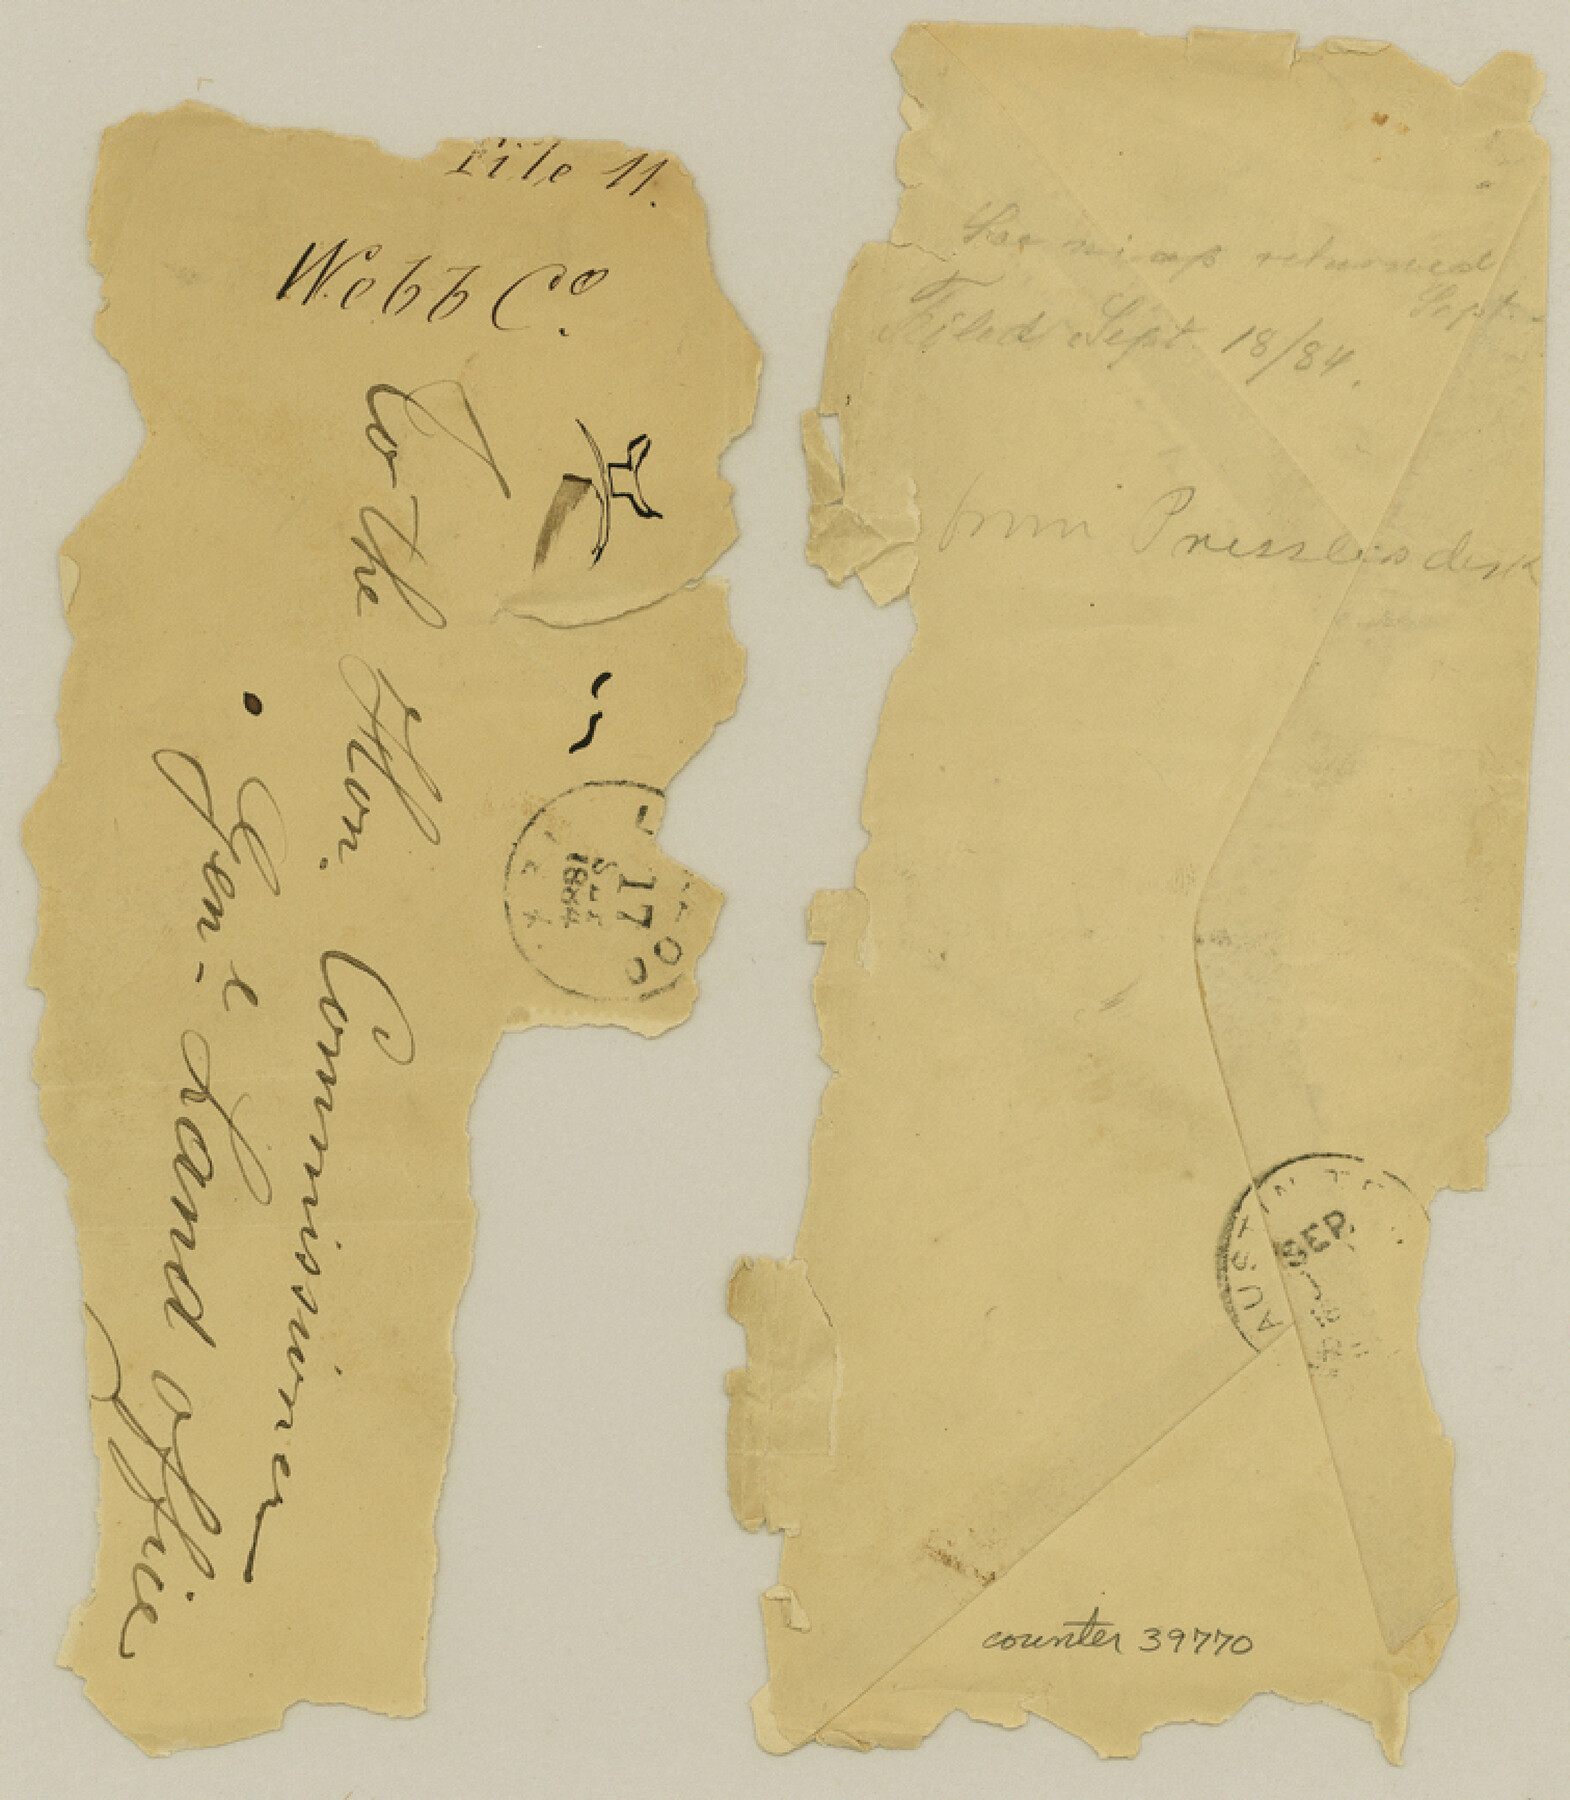 File 11.
Webb Co.
To the Hon. Commissioner
Gen'l Land office
17
1884
See map returned
Sept.
Filed Sept. 18/84.
from Presslers desk
AUSTIN TE
SEP
counter 39770